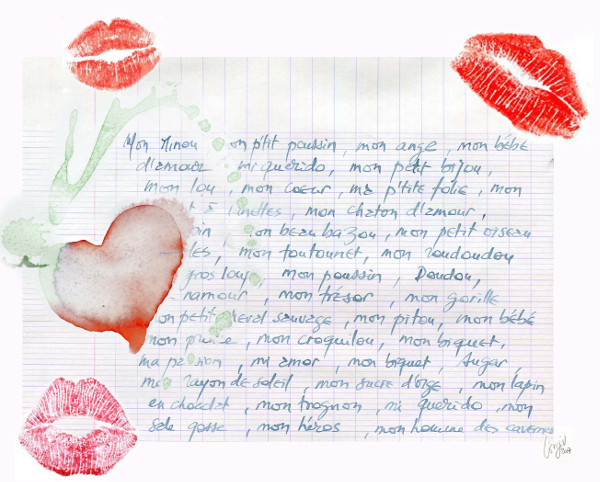 Mon Minou on p'tit poussin, mon ange, mon bébé
d'amour mi querido, mon petit bijou,
mon lou, mon coeur, ma p'tite folie, mon
à lunettes, mon chaton d'amour,
on beau bazou, mon petit oiseau
les, mon toutounet, mon doudoudou
gros loup, mon poussin, Doudou,
namour, mon trésor, mon gorille
on petit cheval sauvage, mon pitou, mon bébé
mon, mon croquilou, mon biquet,
ma passion, mi amor, mon biquet, Sugar,
mi rayon de soleil, mon sucre d'orge, mon lapin
en chocolat, mon trognon, mi querido, mon
sale gosse, mon héros, mon homme des cavernes